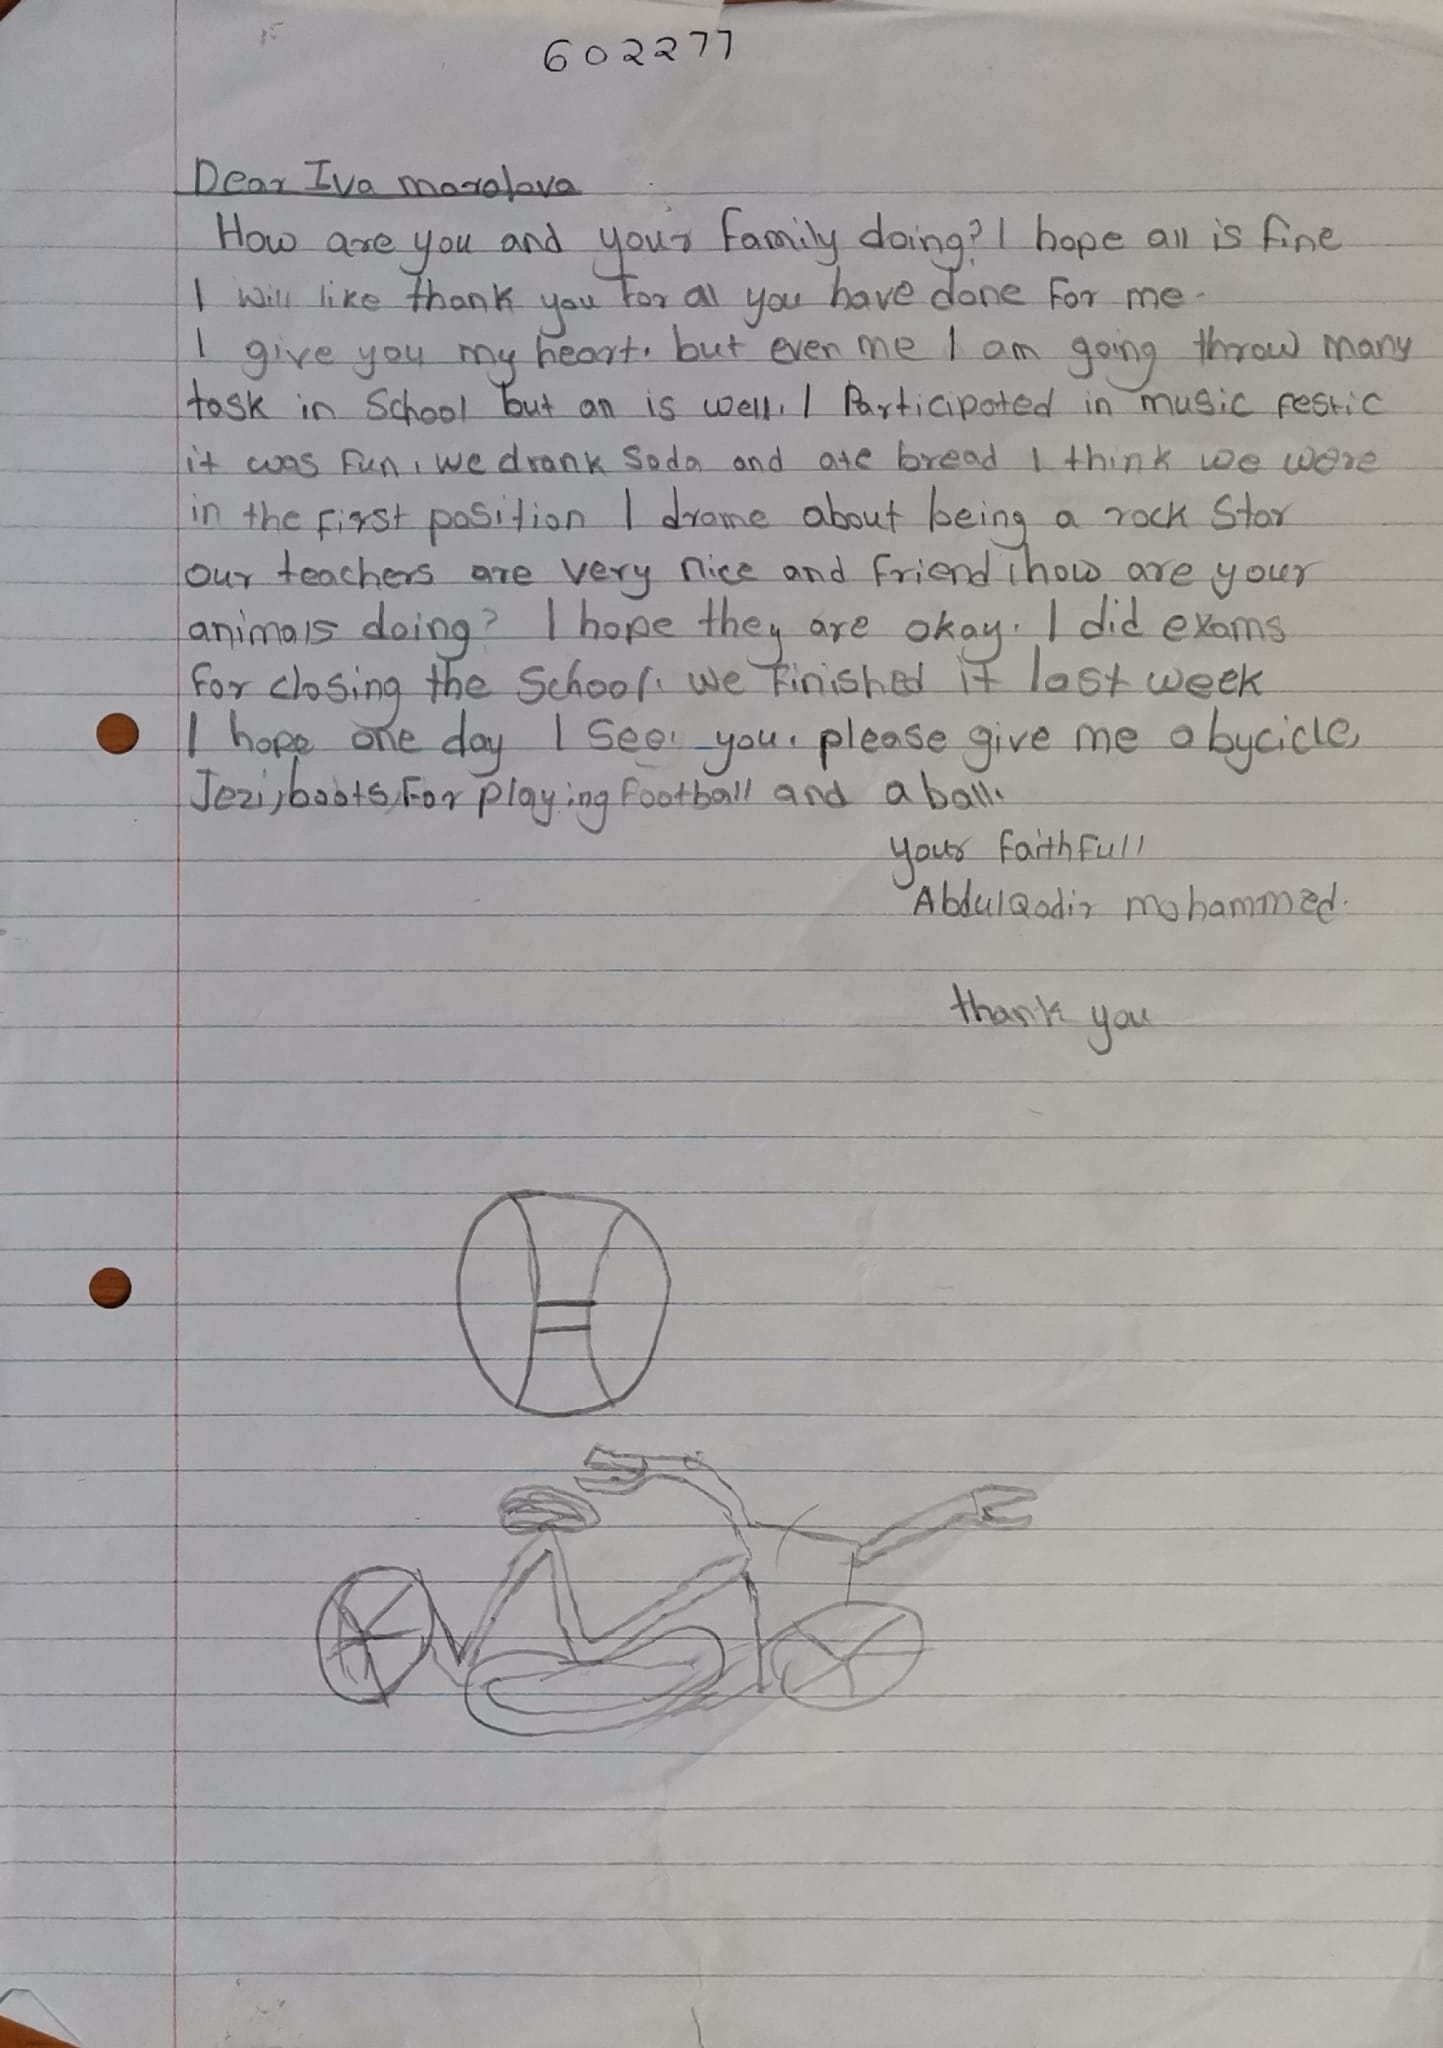 602277
Dear Iva moralova
How are you and your family doing? I hope all is fine
I will like thank you for all you have done for me.
I give you my heart. but even me I am going throw many
task in School but all is well. I Participated in music festic
it was fun, we drank Soda and ate bread I think we were
in the first position I drame about being a rock Star
our teachers are very nice and friend how are your
animals doing? I hope they are okay. I did exams
for closing the School. we finished it last week
I hope one day I See you. please give me a bycicle,
Jezi, boots for playing football and a ball.
your faithfull
AbdulQadir mohammed.
thank you